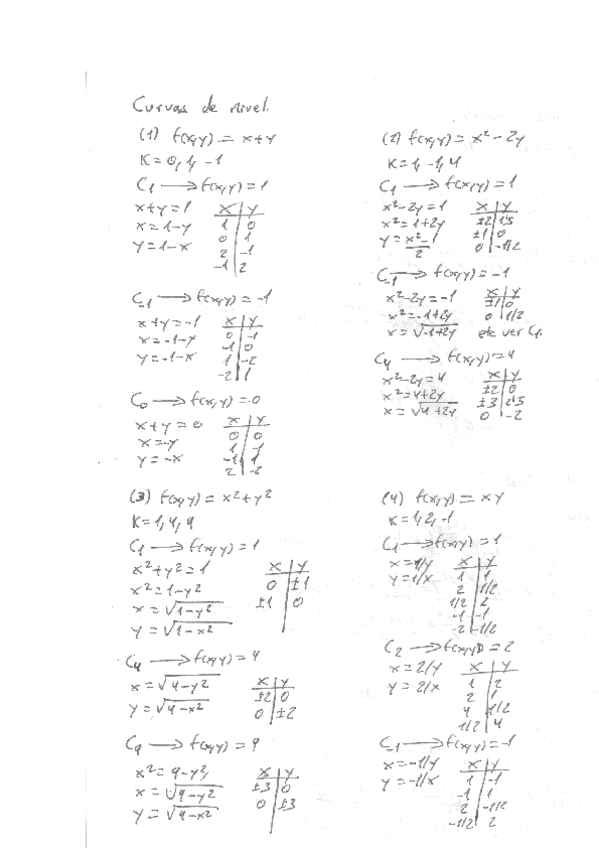 Curvas de nivel.
(1) f(x,y) = x+y
K = 0, 1, -1
C₁ → f(x,y) = 1
x+y = 1
x = 1-y
y = 1-x
x | y
1 | 0
0 | 1
2 | -1
-1 | 2
C₋₁ → f(x,y) = -1
x+y = -1
x = -1-y
y = -1-x
x | y
0 | -1
-1 | 0
1 | -2
-2 | 1
C₀ → f(x,y) = 0
x+y = 0
x = -y
y = -x
x | y
0 | 0
1 | -1
-1 | 1
2 | -2
(2) f(x,y) = x² - 2y
K = 1, -1, 4
C₁ → f(x,y) = 1
x²-2y = 1
x² = 1+2y
y = x²-1
2
x | y
±2 | 1'5
±1 | 0
0 | -1/2
C₋₁ → f(x,y) = -1
x²-2y = -1
x² = -1+2y
x = √-1+2y
x | y
±1 | 0
0 | 1/2
etc ver C₁.
C₄ → f(x,y) = 4
x²-2y = 4
x² = 4+2y
x = √4+2y
x | y
±2 | 0
±3 | 2'5
0 | -2
(3) f(x,y) = x²+y²
K = 1, 4, 9
C₁ → f(x,y) = 1
x²+y² = 1
x² = 1-y²
x = √1-y²
y = √1-x²
x | y
0 | ±1
±1 | 0
C₄ → f(x,y) = 4
x = √4-y²
y = √4-x²
x | y
±2 | 0
0 | ±2
C₉ → f(x,y) = 9
x² = 9-y²
x = √9-y²
y = √9-x²
x | y
±3 | 0
0 | ±3
(4) f(x,y) = xy
K = 1, 2, -1
C₁ → f(x,y) = 1
x = 1/y
y = 1/x
x | y
1 | 1
2 | 1/2
1/2 | 2
-1 | -1
-2 | -1/2
C₂ → f(x,y) = 2
x = 2/y
y = 2/x
x | y
1 | 2
2 | 1
4 | 1/2
1/2 | 4
C₋₁ → f(x,y) = -1
x = -1/y
y = -1/x
x | y
1 | -1
-1 | 1
2 | -1/2
-1/2 | 2